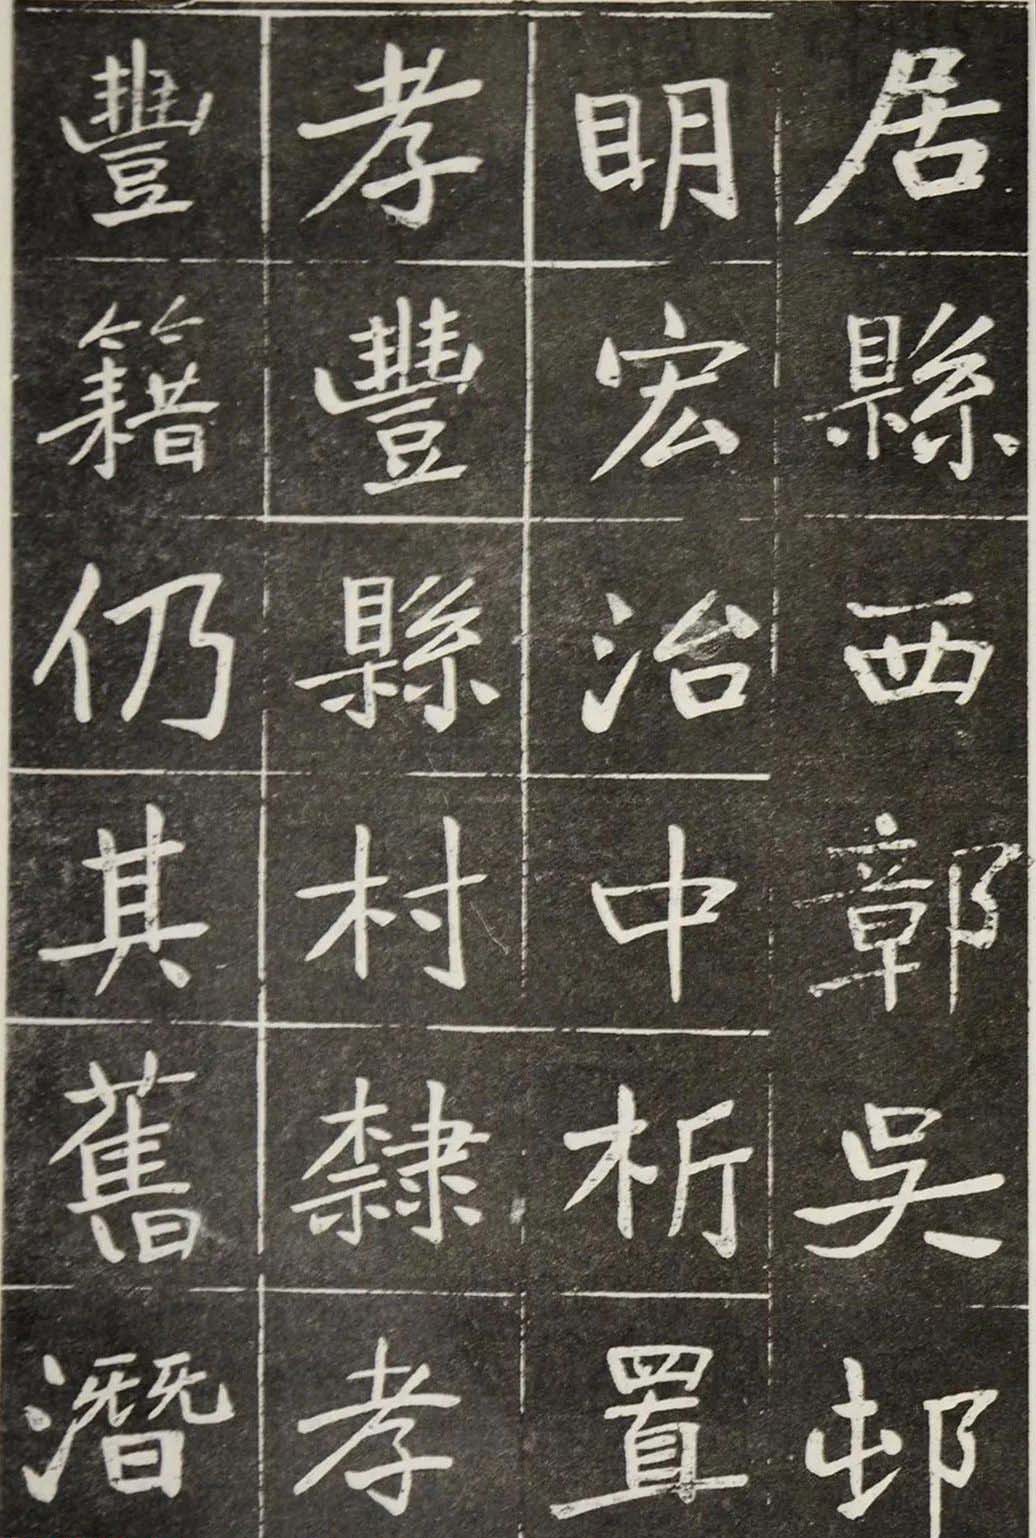 居縣西鄣吳邨
明宏治中析置
孝豐縣村隸孝
豐籍仍其舊潛